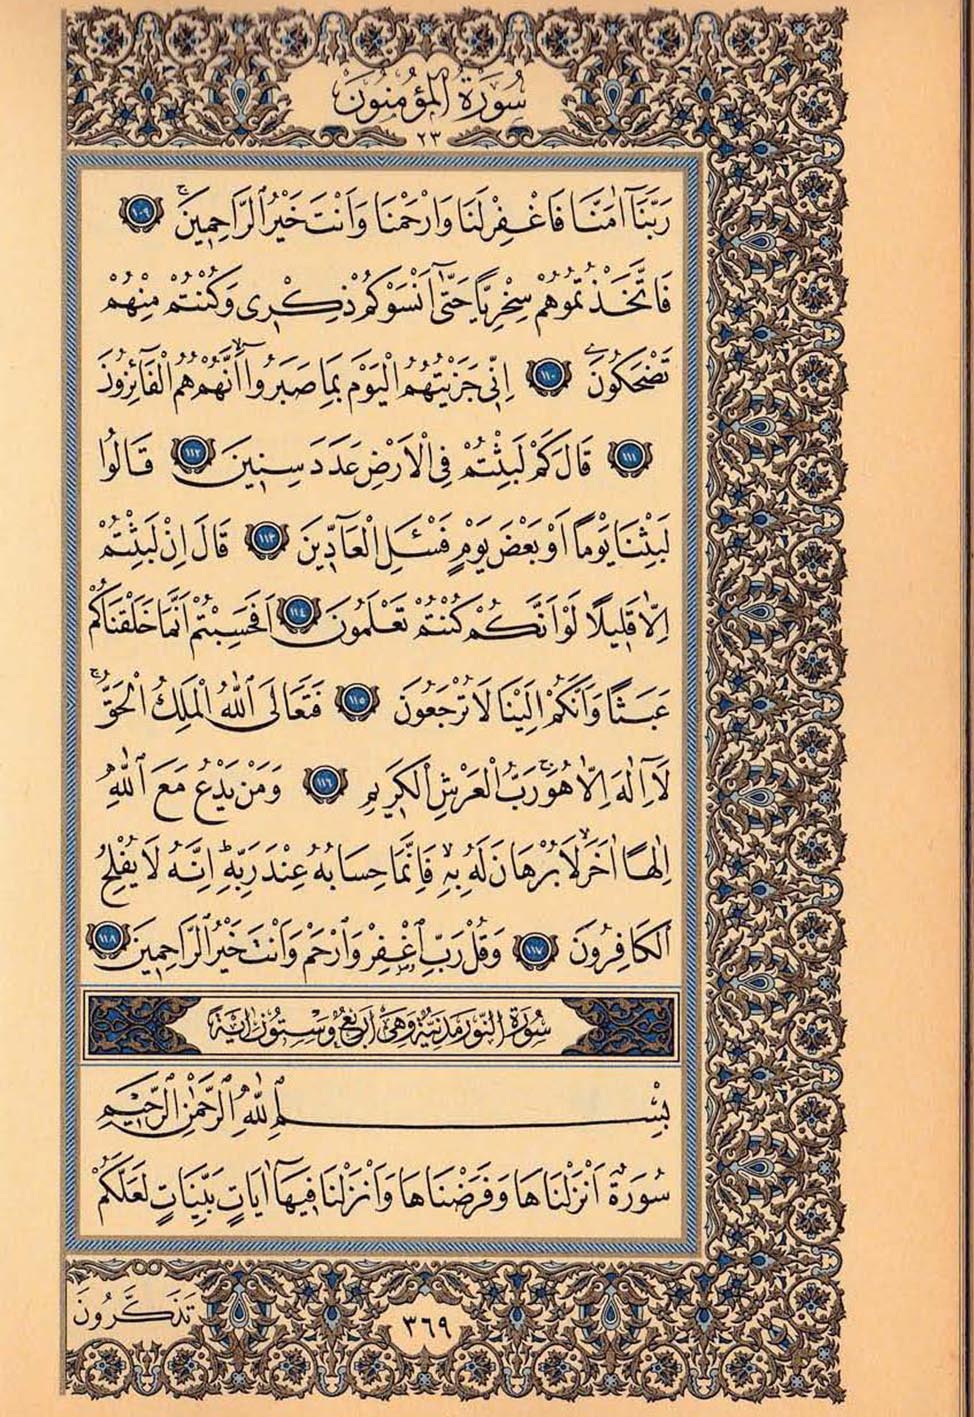 سُورَةُ الْمُؤْمِنُونَ
٢٣
رَبَّنَآ اٰمَنَّا فَاغْفِرْلَنَا وَارْحَمْنَا وَاَنْتَ خَيْرُ الرَّاحِم۪ينَۚ ١٠٩
فَاتَّخَذْتُمُوهُمْ سِخْرِيًّا حَتّٰٓى اَنْسَوْكُمْ ذِكْر۪ى وَكُنْتُمْ مِنْهُمْ
تَضْحَكُونَ ١١٠ اِنّ۪ى جَزَيْتُهُمُ الْيَوْمَ بِمَا صَبَرُواۙ اَنَّهُمْ هُمُ الْفَآئِزُونَ
١١١ قَالَ كَمْ لَبِثْتُمْ فِى الْاَرْضِ عَدَدَ سِن۪ينَ ١١٢ قَالُوا
لَبِثْنَا يَوْمًا اَوْ بَعْضَ يَوْمٍ فَسْـَٔلِ الْعَآدّ۪ينَ ١١٣ قَالَ اِنْ لَبِثْتُمْ
اِلَّا قَل۪يلًا لَوْ اَنَّكُمْ كُنْتُمْ تَعْلَمُونَ ١١٤ اَفَحَسِبْتُمْ اَنَّمَا خَلَقْنَاكُمْ
عَبَثًا وَاَنَّكُمْ اِلَيْنَا لَا تُرْجَعُونَ ١١٥ فَتَعَالَى اللّٰهُ الْمَلِكُ الْحَقُّۚ
لَآ اِلٰهَ اِلَّا هُوَۚ رَبُّ الْعَرْشِ الْكَر۪يمِ ١١٦ وَمَنْ يَدْعُ مَعَ اللّٰهِ
اِلٰهًا اٰخَرَۙ لَا بُرْهَانَ لَهُ بِه۪ۙ فَاِنَّمَا حِسَابُهُ عِنْدَ رَبِّه۪ۜ اِنَّهُ لَا يُفْلِحُ
الْكَافِرُونَ ١١٧ وَقُلْ رَبِّ اغْفِرْ وَارْحَمْ وَاَنْتَ خَيْرُ الرَّاحِم۪ينَ ١١٨
سُورَةُ النُّورِ مَدَنِيَّةٌ وَهِىَ اَرْبَعٌ وَسِتُّونَ اٰيَةً
بِسْمِ اللّٰهِ الرَّحْمٰنِ الرَّح۪يمِ
سُورَةٌ اَنْزَلْنَاهَا وَفَرَضْنَاهَا وَاَنْزَلْنَا ف۪يهَآ اٰيَاتٍ بَيِّنَاتٍ لَعَلَّكُمْ
تَذَكَّرُونَ
٣٦٩